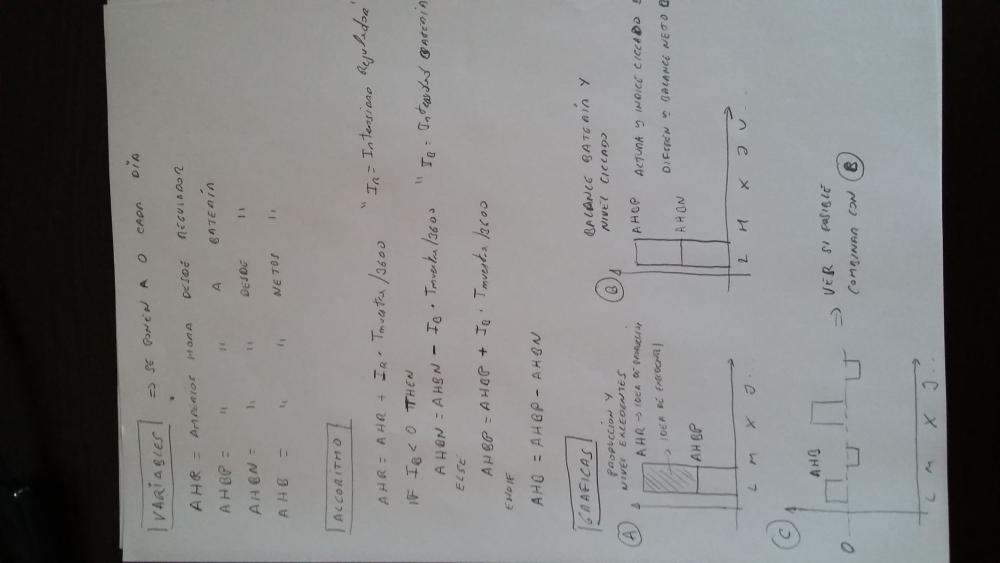 VARIABLES => SE PONEN A 0 CADA DÍA
AHR = AMPERIOS HORA DESDE REGULADOR
AHBP = " " A BATERÍA
AHBN = " " DESDE "
AHB = " " NETOS "
ALGORITMO
AHR = AHR + IR · Tmuestra/3600 " IR = Intensidad Regulador"
IF IB < 0 THEN
AHBN = AHBN - IB · Tmuestra/3600 " IB = Intensidad BATERIA
ELSE
AHBP = AHBP + IB · Tmuestra/3600
ENDIF
AHB = AHBP - AHBN
GRAFICAS
A
PRODUCCIÓN Y
NIVEL EXCEDENTES
AHR -> IDEA DE
-> IDEA DE
AHBP
L M X J ..
B
BALANCE BATERÍA Y
NIVEL CICLADO
AHBP ALTURA Y INDICE CICLADO
AHBN DIFEREN Y BALANCE NETO
L M X J V ..
C
AHB
0
L M X J ..
=> VER SI POSIBLE
COMBINAR CON B